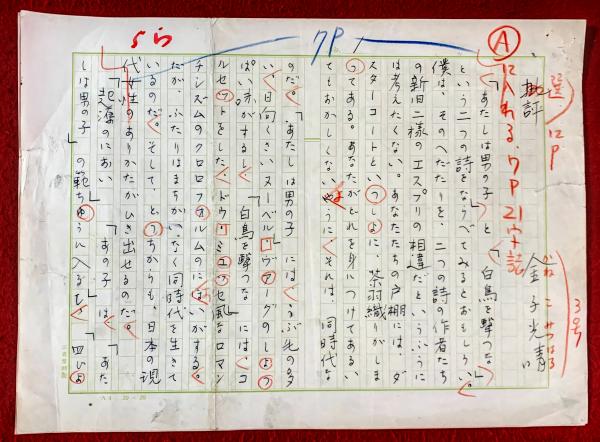 5ら
7P
Ⓐに入れる、7P 21ウ誌
選 12P
3号
批評
金子光晴
かね こ みつはる
「あたしは男の子」と「白鳥を撃つな」
という二つの詩をならべてみるとおもしろい。
僕は、そのへだたりを、二つの詩の作者たち
の新旧二様のエスプリの相違だというふうに
は考えたくない。あなたたちの戸棚には、ダ
スターコートといっしょに、茶羽織りがしま
ってある。あなたがどれを身につけてあるい
てもおかしくないように、それは、同時代な
のだ。「あたしは男の子」にはくうぶ毛の多
い、日向くさいヌーベル・ヴァーグのしょう
ぱい赤がするし、「白鳥を撃つな」には、コ
ルセットをした、ドゥ・ミュッセ風なロマン
チシズムのクロロフォルムのにほいがする。
だが、ふたりはまちがいなく同時代を生きて
いるのだ。そして、どっちからも、日本の現
代女性のありかたがひき出せるのだ。
「起藻のにおい」「あの子」は、「あた
しは男の子」の範ちゅうに入るし、「四ひょ